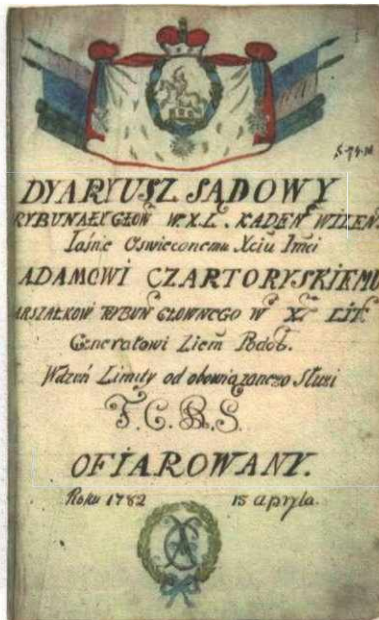 S-74-H
DYARYUSZ SĄDOWY
RYBUNAŁŲ GŁOW W.X.L. KADEN WILEŃ
Iaśnie Oświeconemu Xciu Imci
ADAMOWI CZARTORYSKIEMU
ARSZAŁKOWI TRYBUN GŁOWNEGO W XTI LIT.
Generałowi Ziem Podol.
W dzień Limity od obowiązanego Sługi
OFIAROWANY.
Roku 1782 15 Apryla.